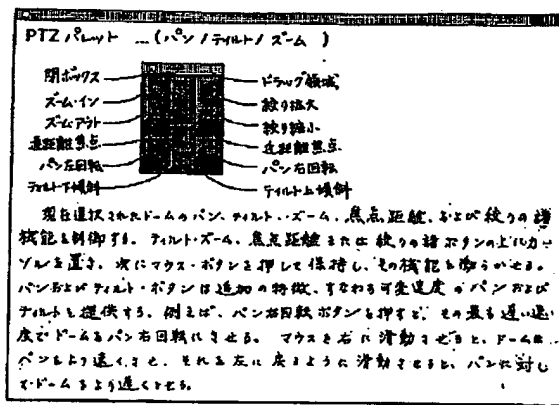 PTZ パレット …(パン/ティルト/ズーム )
閉ボックス ドラッグ領域
ズーム・イン 絞り拡大
ズーム・アウト 絞り縮小
遠距離焦点 近距離焦点
パン左回転 パン右回転
ティルト下傾斜 ティルト上傾斜
現在選択されたドームのパン、ティルト・・ズーム、焦点距離、および絞りの諸
機能を制御する。ティルト・ズーム、焦点距離または絞りの諸ボタンの上にカー
ソルを置き、次にマウス・ボタンを押して保持し、その機能を働らかせる。
パンおよびティルト・ボタンは追加の特徴、すなわち可変速度のパンおよび
ティルトを提供する。例えば、パン右回転ボタンを押すと、その最も遅い速
度でドームをパン右回転にさせる。マウスを右に滑動させると、ドームに
パンをより速くさせ、それを左に戻るように滑動させると、パンに対し
てドームをより遅くさせる。